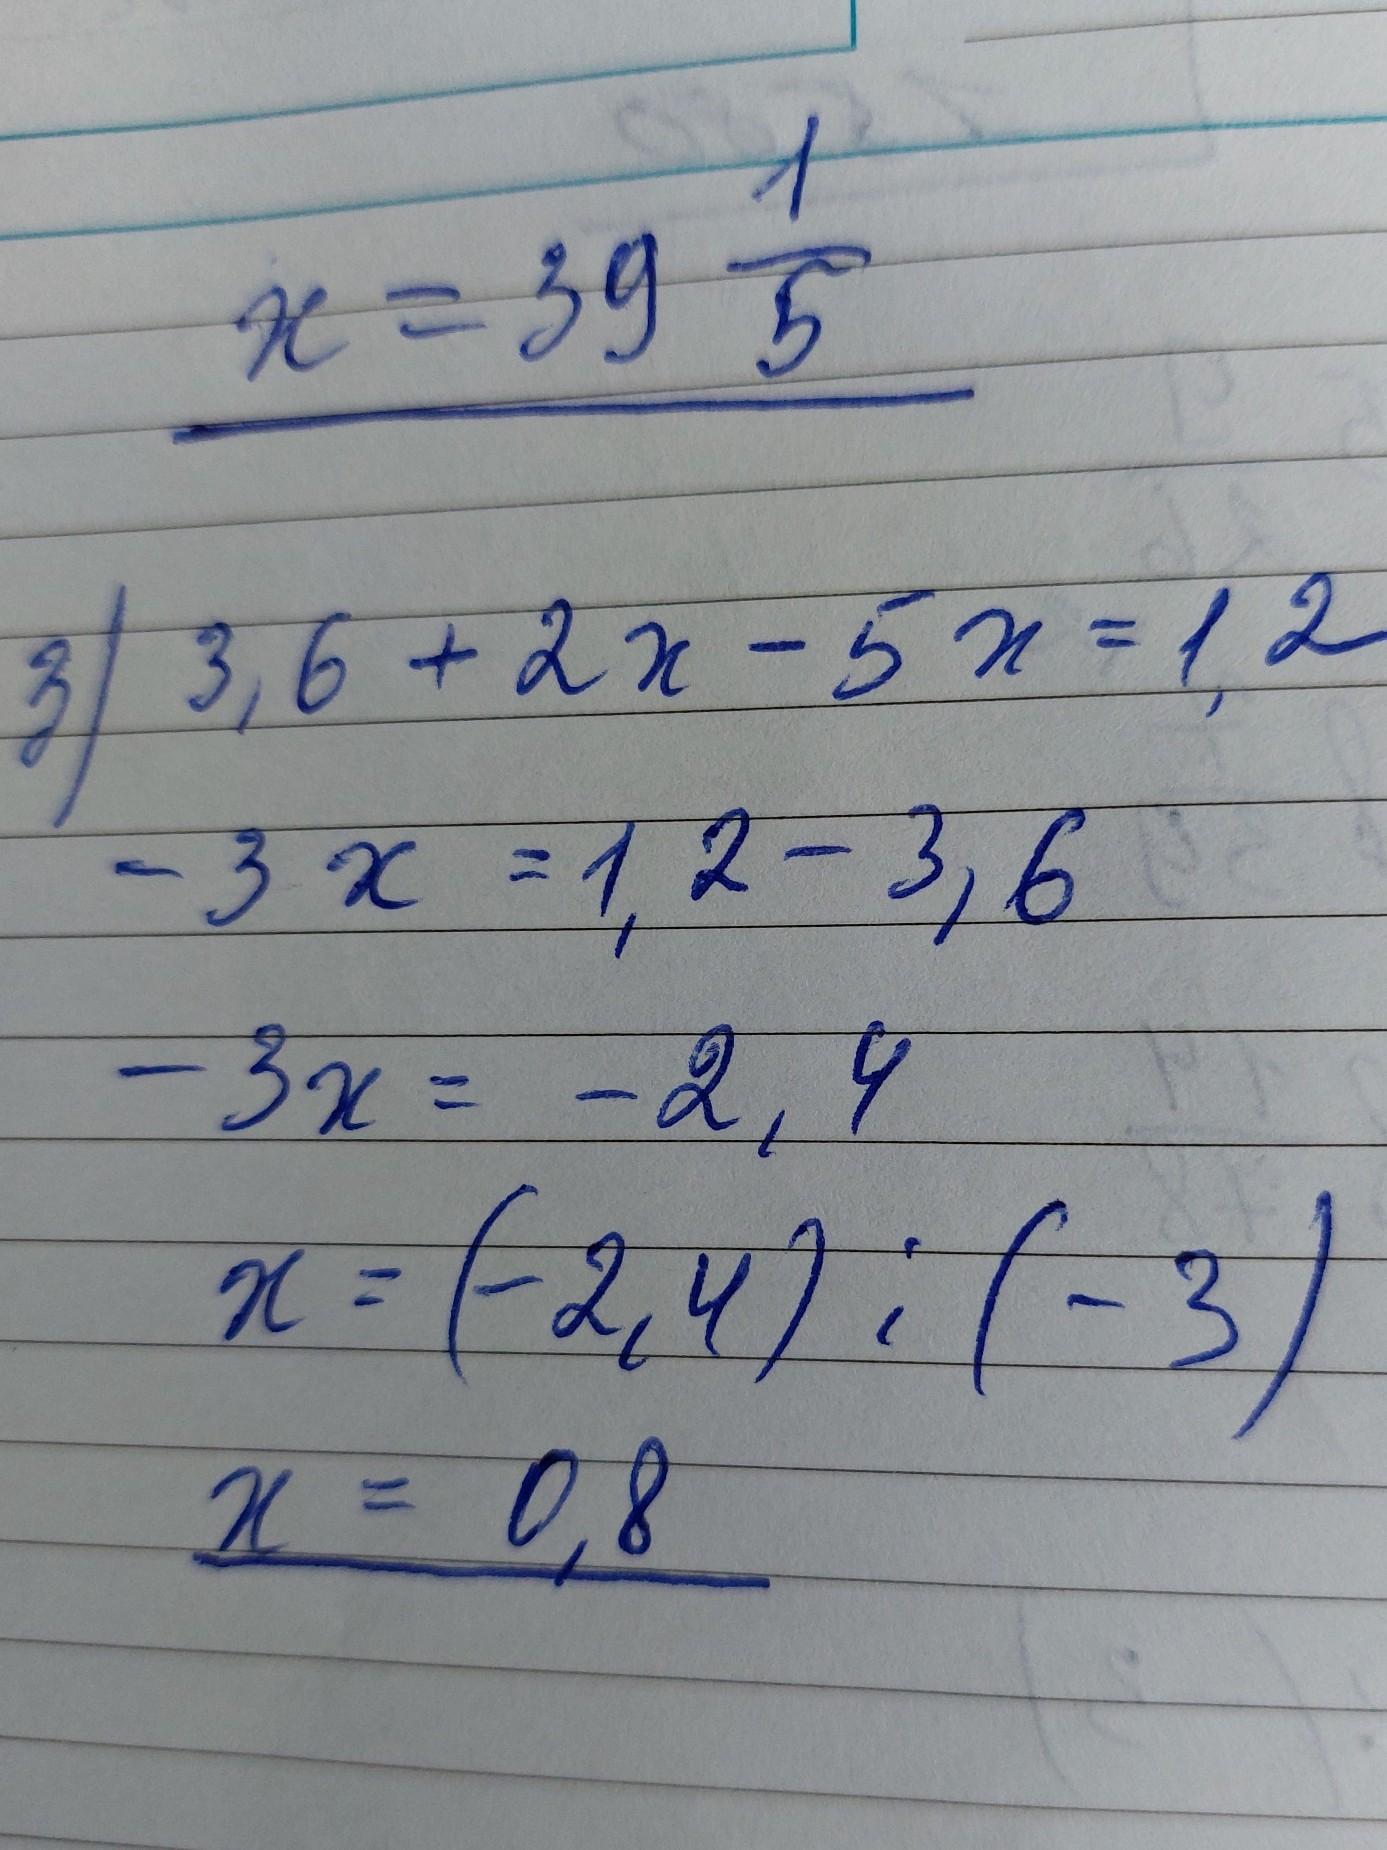 x = 39 1/5
3) 3,6 + 2x - 5x = 1,2
- 3x = 1,2 - 3,6
- 3x = -2,4
x = (-2,4) : (-3)
x = 0,8